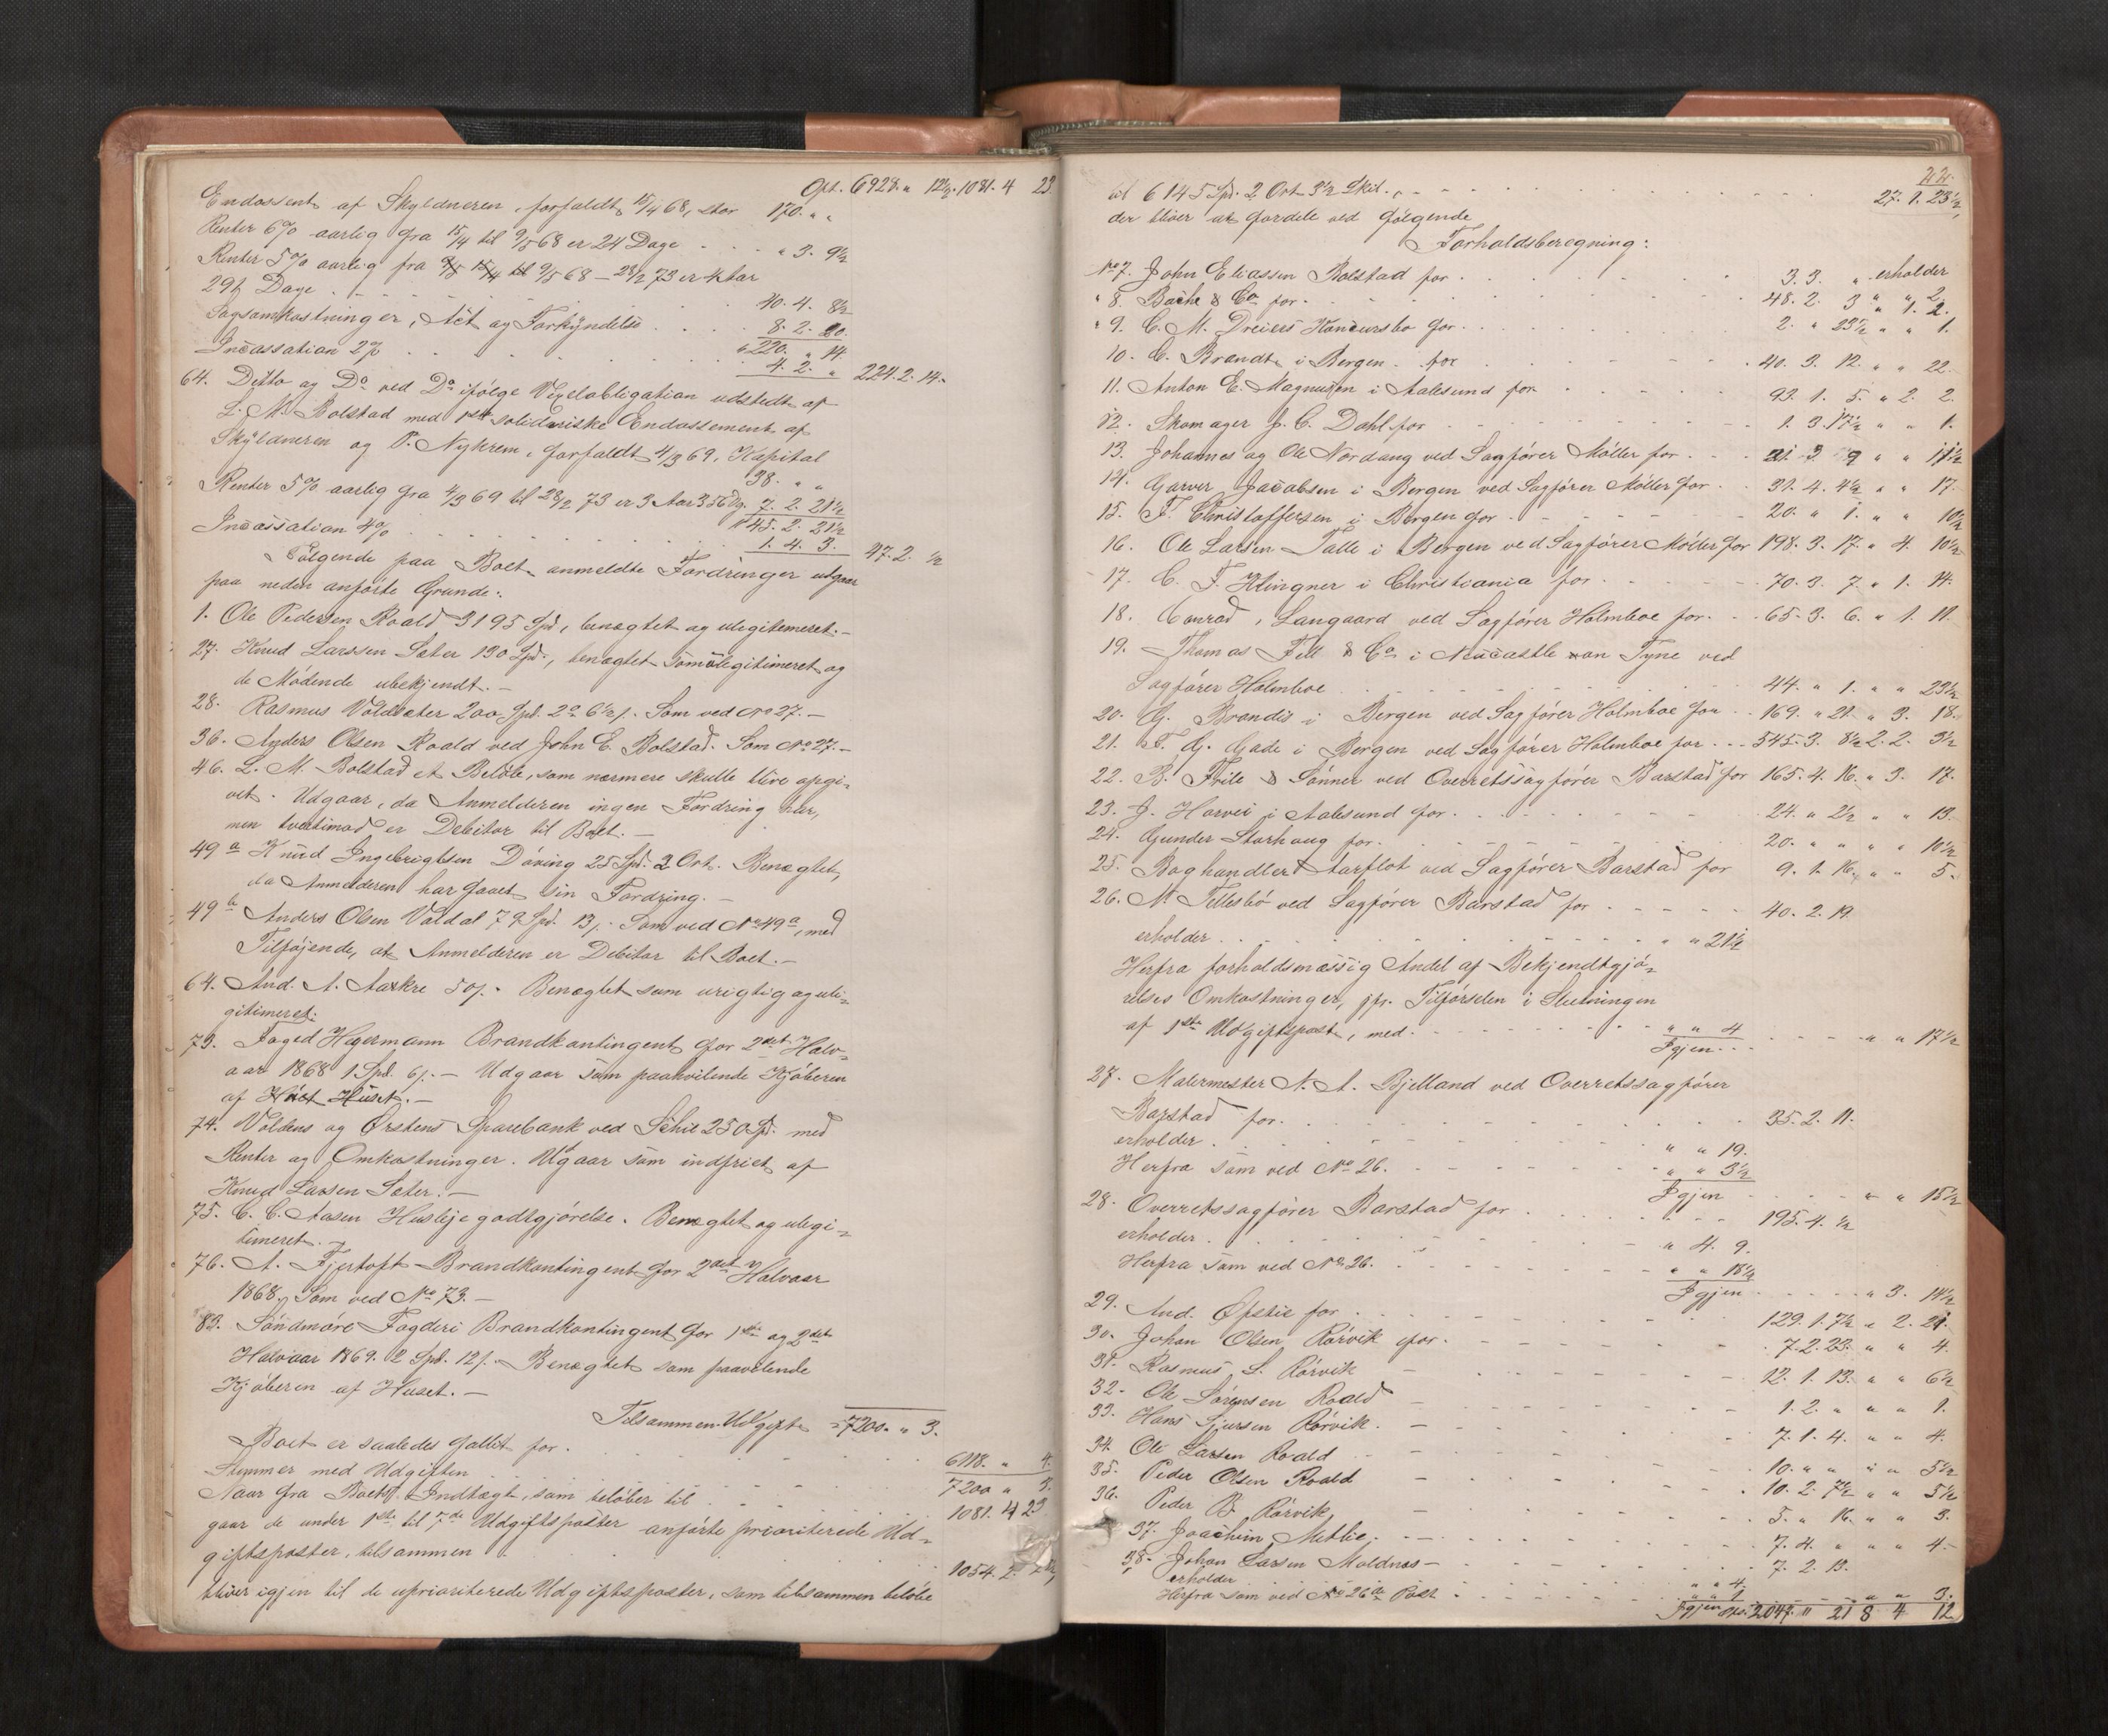 Opt. 6928. " 12½. 1081. 4 23
Endossent af Skyldneren, forfaldt 15/4 68, stor 170. " "
Renter 6% aarlig fra 15/4 til 9/5 68 er 24 Dage " 3. 9½
Renter 5% aarlig fra 9/5 68 – 28/2 73 er 4 Aar
291 Dage 40. 4. 8½
Sagsomkostninger, Act og Forkyndelse 8. 2. 20.
220. " 14.
Incassation 2% 4. 2. " 224. 2. 14.
64. Ditto og Do ved Do ifølge Vexelobligation udstedt af
L. M. Bolstad med 1ste solidariske Endossement af
Skyldneren og P. Nykrem, forfaldt 4/3 69, Kapital
38. " "
Renter 5% aarlig fra 4/3 69 til 28/2 73 er 3 Aar 356 Dg. 7. 2. 21½
45. 2. 21½
Incassation 4% 1. 4. 3. 47. 2. ½
Følgende paa Boet anmeldte Fordringer udgaar
paa neden anførte Grunde:
1. Ole Pedersen Roald 3195 Spd, benægtet og ulegitimeret.–
27. Knud Larssen Sæter 130 Spd., benægtet som ulegitimeret og
de Mødende ubekjendt.–
28. Rasmus Voldsæter 200 Spd. 2o 6½ s. Som ved No 27.–
36. Anders Olsen Roald ved John E. Bolstad. Som No 27.–
46. L. M. Bolstad et Beløb, som nærmere skulle blive opgi-
vet. Udgaar, da Anmelderen ingen Fordring har,
men tvertimod er Debitor til Boet.–
49 a Knud Ingebrigtsen Døving 25 Spd. 2 Ort. Benægtet,
da Anmelderen har faaet sin Fordring.–
49 b Anders Olsen Valdal 79 Spd. 13 s. Som ved No 49 a, med
Tilføjende, at Anmelderen er Debitor til Boet.–
64. And. A. Aarkre 50 s. Benægtet som urigtig og uli-
gitimeret.
73. Foged Hagermann Brandkontingent for 2det Halv-
aar 1868 1 Spd. 6 s.– Udgaar som paahvilende Kjøberen
af Huset.–
74. Voldens og Ørstens Sparebank ved Schie 250 Spd. med
Renter og Omkostninger. Udgaar som indfriet af
Knud Larsen Sæter.–
75. C. C. Aasen Huslejegodtgjørelse. Benægtet og ulegi-
timeret.–
76. A. Fjertoft Brandkontingent for 2det Halvaar
1868, Som ved No 73.–
83. Søndmøre Fogderi Brandkontingent for 1ste og 2det
Halvaar 1869. 2 Spd. 12 s. Benægtet som paavilende
Kjøberen af Huset.–
Tilsammen Udgift 7200. " 3.
Boet er saaledes fallit for 6118. " 4.
Stemmer med Udgiften 7200 " 3.
Naar fra Boets Indtægt, som beløber til 1081. 4 23
gaar de under 1ste til 7de Udgiftsposter anførte prioriterede Ud-
giftsposter, tilsammen 1054. 2.
bliver igjen til de uprioriterede Udgiftsposter, som tilsammen beløbe
22.
til 6145 Spd. 2 Ort 3½ Skil. 27. 1. 23½,
der bliver at fordele ved følgende
Forholdsberegning:
No 7. John Eliassen Bolstad for 3. 3. " erholder " " 2.
" 8. Bache & Co for 48. 2. 3 " 1. 2.
" 9. C. M. Dreiers Concursbo for 2. " 23½ " " 1.
10. C. Brandt i Bergen for 40. 3. 12. " " 22.
11. Anton E. Magnusen i Aalesund for 93. 1. 5. " 2. 2.
12. Skomager J. C. Dahl for 1. 3. 17½ " " 1.
13. Johannes og Ole Nordang ved Sagfører Møller for 21. 3. 9 " " 11½
14. Garver Jacobsen i Bergen ved Sagfører Møller for 31. 4. 4½ " " 17.
15. F. Christoffersen i Bergen for 20. " 1. " " 10½
16. Ole Larsen Talle i Bergen ved Sagfører Møller for 198. 3. 17. " 4. 10½
17. C. F. Klingner i Christiania for 70. 3. 7. " 1. 14.
18. Conrad Langaard ved Sagfører Holmboe for 65. 3. 6. " 1. 11.
19. Thomas Fell & Co i Neucastle on Tyne ved
Sagfører Holmboe 44. " 1. " " 23½
20. G. Brandis i Bergen ved Sagfører Holmboe for 169. " 21. " 3. 18.
21. F. G. Gade i Bergen ved Sagfører Holmboe for 545. 3. 8½ 2. 2. 3½
22. B. Friile & Sønner ved Overretssagfører Barstad for 165. 4. 16. " 3. 17.
23. J. Horvei i Aalesund for 24. " 2½ " " 13.
24. Gunder Storhaug for 20. " " " " 10½
25. Boghandler Aarflot ved Sagfører Barstad for 9. 1. 16. " " 5.
26. N. Tellesbø ved Sagfører Barstad for 40. 2. 19.
erholder " " 21½
Herfra forholdsmæssig Andel af Bekjendtgjø-
relses Omkostninger, jfr. Tilførselen i Slutningen
af 1ste Udgiftspost, med " " 4
Igjen " " 17½
27. Malermester N. A. Bjelland ved Overretssagfører
Barstad for 35. 2. 11.
erholder " " 19.
Herfra som ved No 26. " " 3½
Igjen " " 15½
28. Overretssagfører Barstad for 195. 4. ½
erholder " 4. 9.
Herfra som ved No 26. " " 18½
Igjen " 3. 14½
29. And. Øpstie for 129. 1. 7½ " 2. 21.
30. Johan Olsen Rørvik for 7. 2. 23. " " 4.
31. Rasmus L. Rørvik – 12. 1. 13. " " 6½
32. Ole Sørensen Roald – 1. 2. " " " 1.
33. Hans Sjursen Rørvik. – 7. 1. 4. " " 4.
34. Ole Larsen Roald – 10. " " " " 5½
35. Peder Olsen Roald – 10. 2. 7½ " " 5½
36. Peder B. Rørvik – 5. " 16. " " 3.
37. Joachim Mitlie. – 7. 4. " " " 4.
38. Johan Larsen Moldnæs – 7. 2. 13.
erholder " " 4.
Herfra som ved No 26de Post " " 1.
Igjen " " 3.
Opt. 2047. " 21 8 4 12